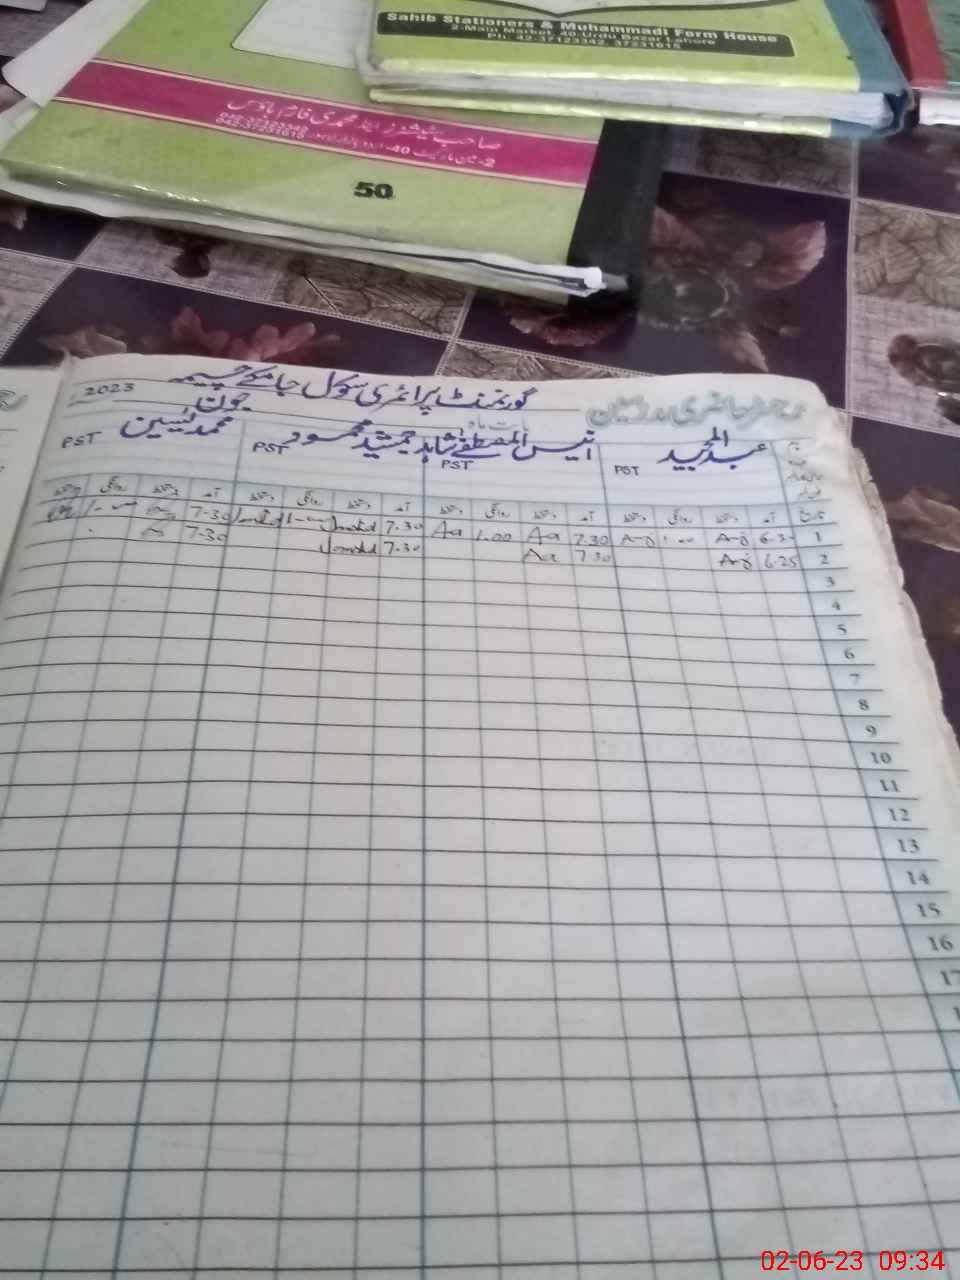 Sahib Stationers & Muhammadi Form House
2-Main Market, 40-Urdu Bazar Lahore
Ph: 42-37123342, 37231615
صاحب سٹیشنرز اینڈ محمدی فارم ہاؤس
042-37231615
50
رجسٹر حاضری مدرسین
گورنمنٹ پرائمری سکول جامکے چیمہ
2023
بابت ماہ جون
عبدالمجید انیس المصطفٰے شاہد جمشید محمود محمد یٰسین
PST PST PST PST
تاریخ آمد دستخط روانگی دستخط آمد دستخط روانگی دستخط آمد دستخط روانگی دستخط آمد دستخط روانگی دستخط
1 6.30 7.30 Aa 1.00 Aa 7.30 7-30
2 6.25 7.30 Aa 7.30 7-30
3
4
5
6
7
8
9
10
11
12
13
14
15
16
17
02-06-23 09:34